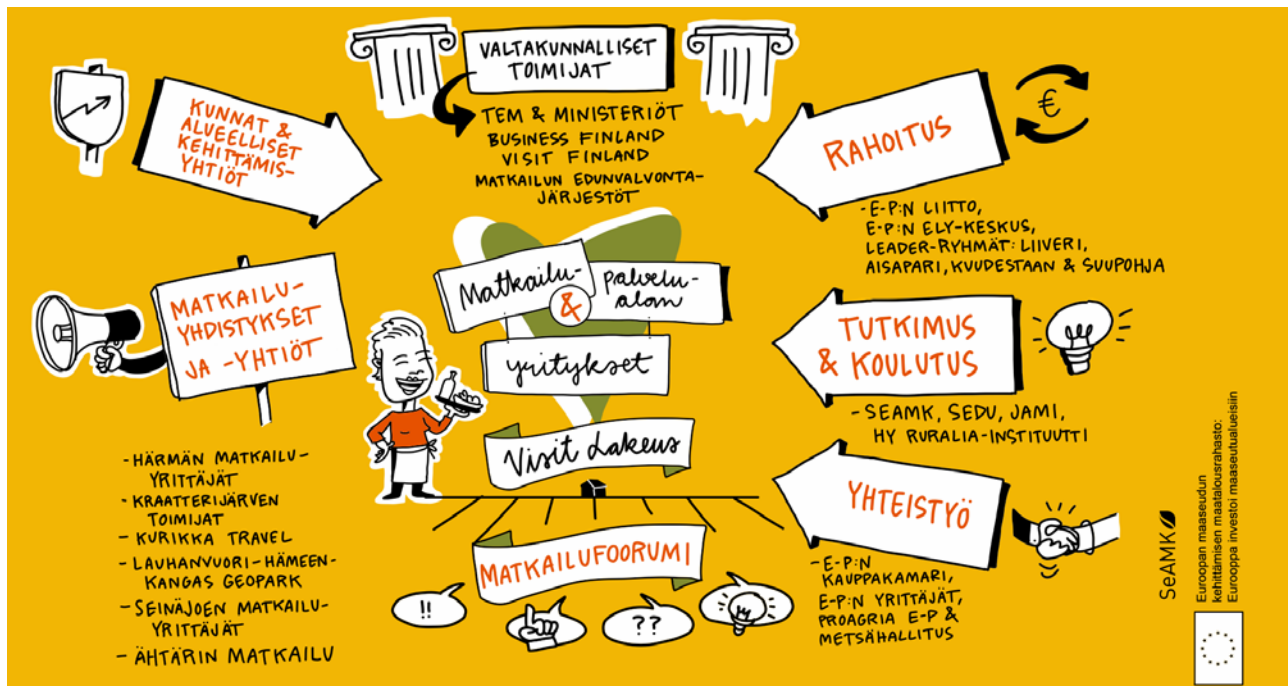 VALTAKUNNALLISET
TOIMIJAT
TEM & MINISTERIÖT
BUSINESS FINLAND
VISIT FINLAND
MATKAILUN EDUNVALVONTA-
JÄRJESTÖT
KUNNAT &
ALUEELLISET
KEHITTÄMIS-
YHTIÖT
RAHOITUS
€
-E-P:N LIITTO,
E-P:N ELY-KESKUS,
LEADER-RYHMÄT: LIIVERI,
AISAPARI, KUUDESTAAN & SUUPOHJA
MATKAILU-
YHDISTYKSET
JA -YHTIÖT
-HÄRMÄN MATKAILU-
YRITTÄJÄT
-KRAATTERIJÄRVEN
TOIMIJAT
- KURIKKA TRAVEL
-LAUHANVUORI-HÄMEEN-
KANGAS GEOPARK
-SEINÄJOEN MATKAILU-
YRITTÄJÄT
- ÄHTÄRIN MATKAILU
Matkailu-
&
palvelu-
alan
yritykset
Visit Lakeus
MATKAILUFOORUMI
!!
??
TUTKIMUS
& KOULUTUS
- SEAMK, SEDU, JAMI,
HY RURALIA-INSTITUUTTI
YHTEISTYÖ
-E-P:N
KAUPPAKAMARI,
E-P:N YRITTÄJÄT,
PROAGRIA E-P &
METSÄHALLITUS
SeAMK
Euroopan maaseudun
kehittämisen maatalousrahasto:
Eurooppa investoi maaseutualueisiin